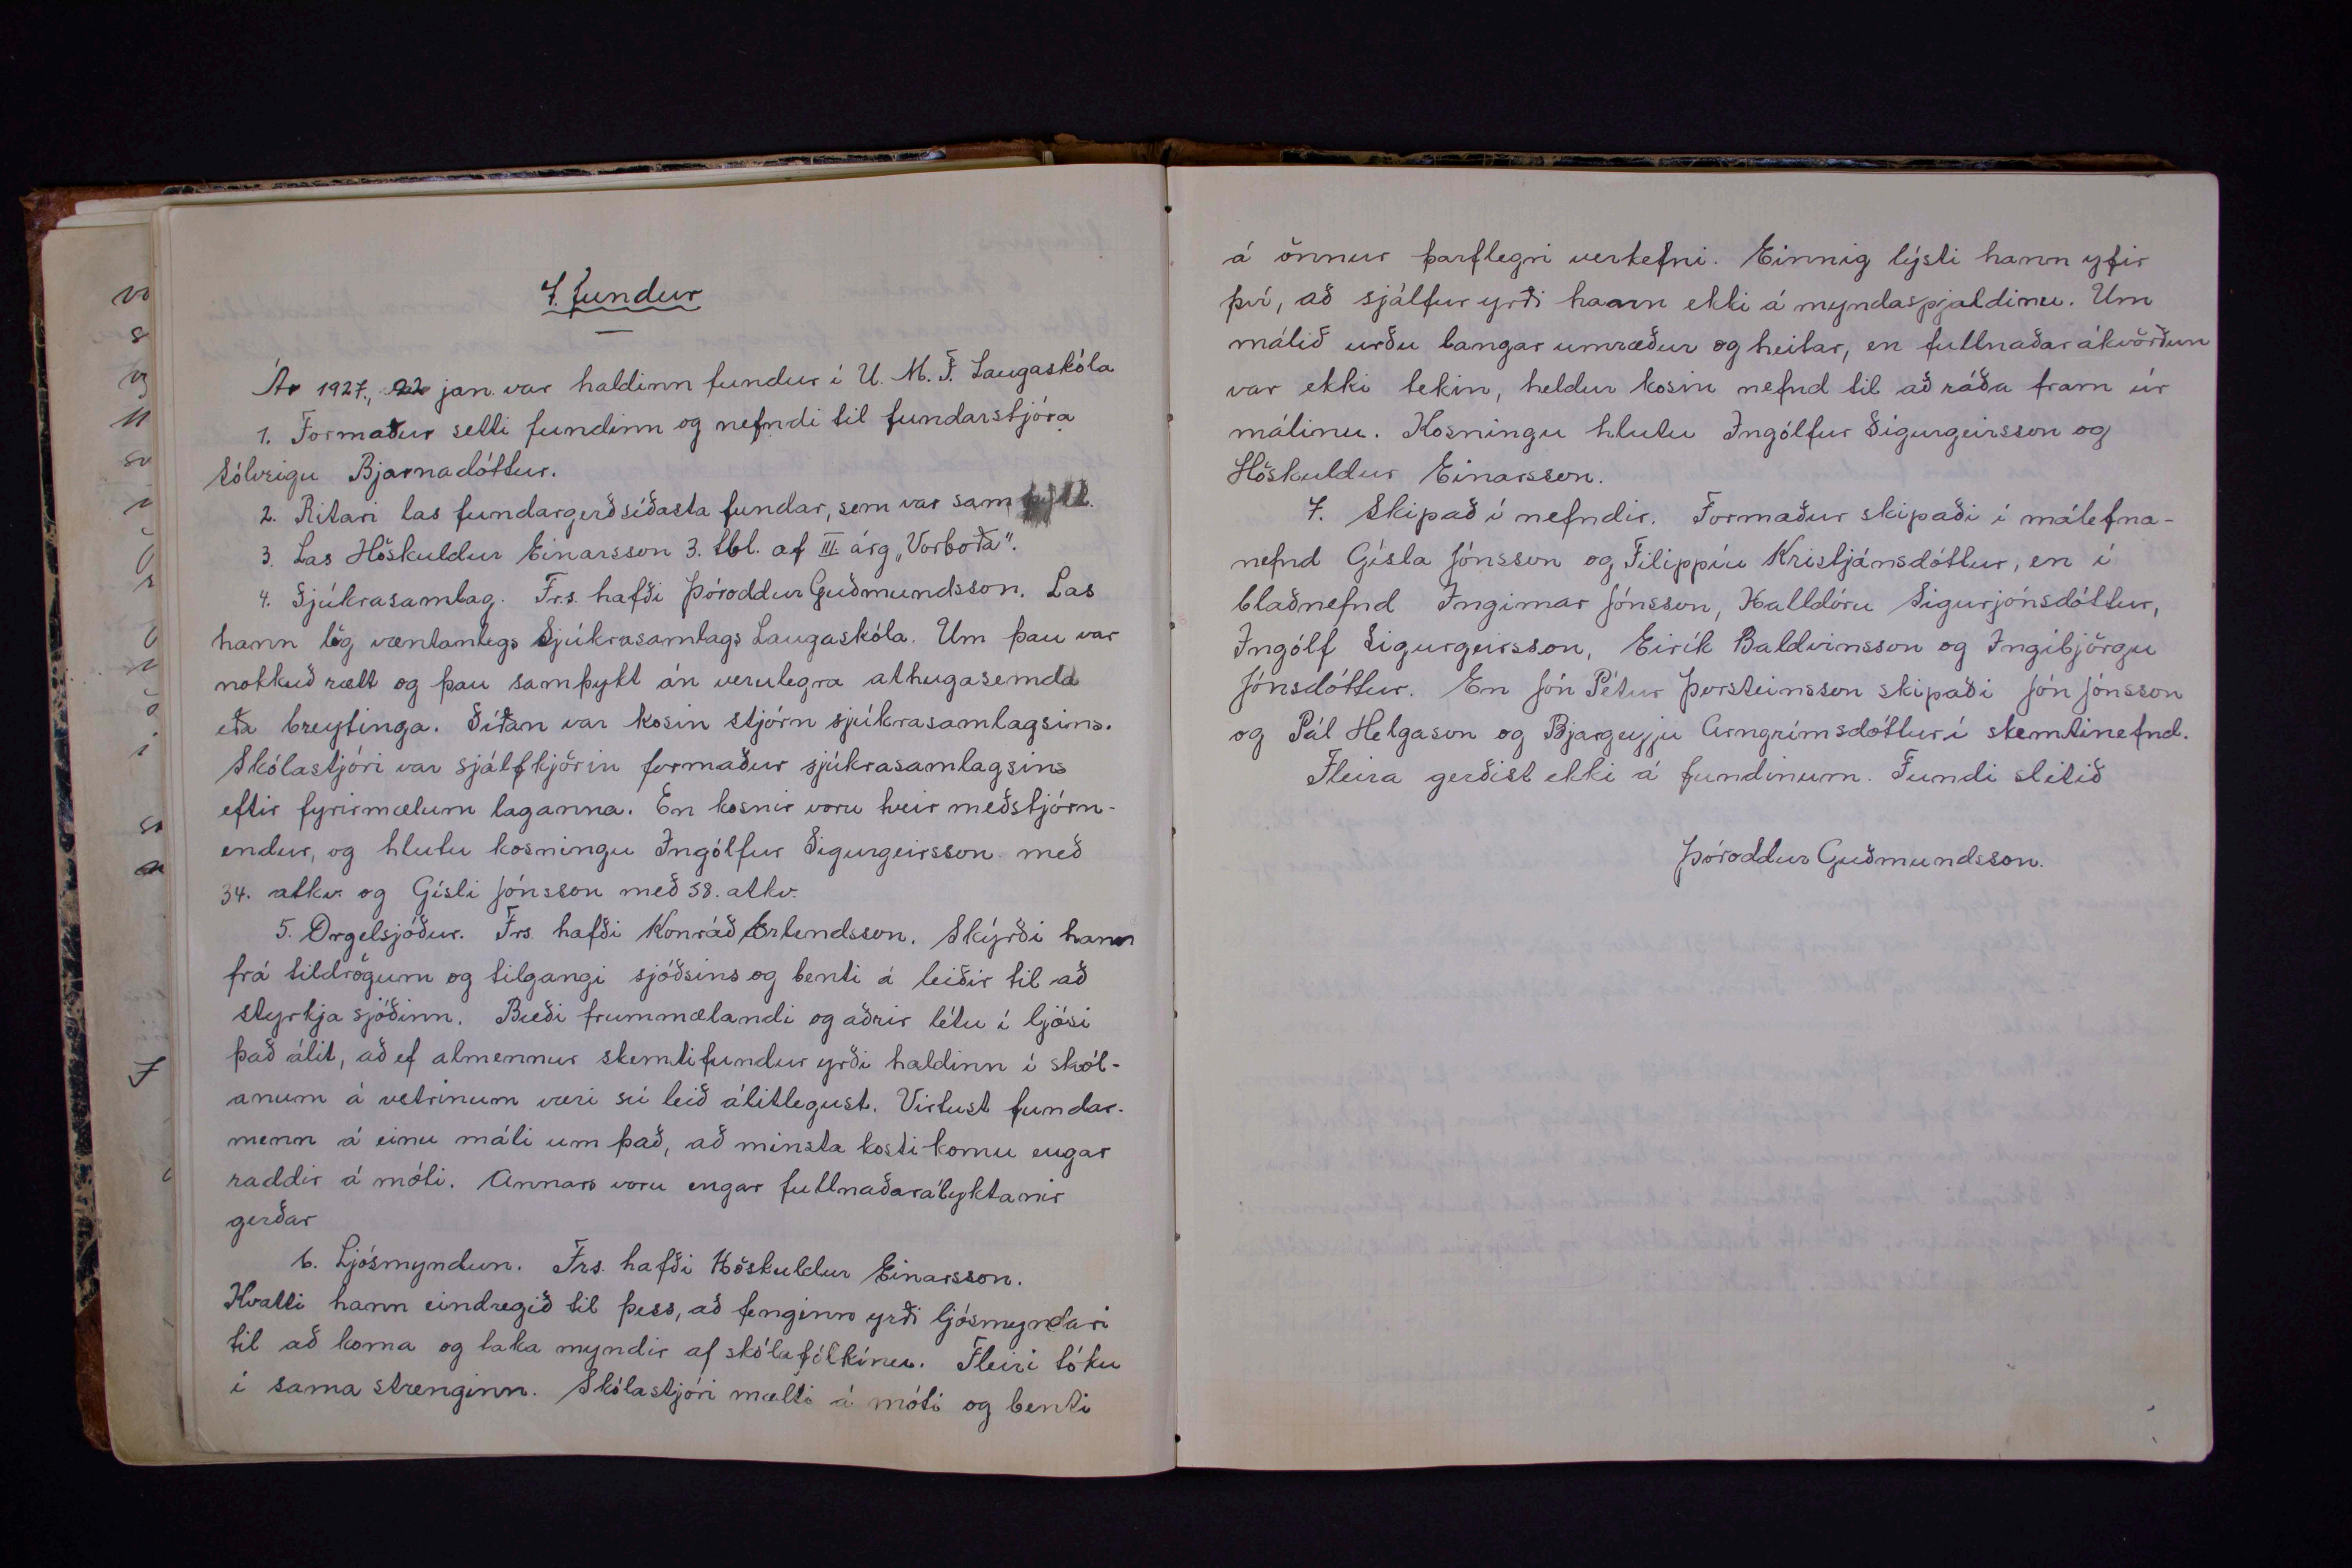 7. fundur
Ár 1927, 22 jan. var haldinn fundur í U. M. F. Laugaskóla
1. Formaður setti fundinn og nefndi til fundarstjóra
Sólveigu Bjarnadóttur.
2. Ritari las fundargerð síðasta fundar, sem var samþykt.
3. Las Höskuldur Einarsson 3. tbl. af III. árg „Vorboða".
4. Sjúkrasamlag. Frs. hafði Þóroddur Guðmundsson. Las
hann lög væntanlegs Sjúkrasamlags Laugaskóla. Um þau var
nokkuð rætt og þau samþykt án verulegra athugasemda
eða breytinga. Síðan var kosin stjórn sjúkrasamlagsins.
Skólastjóri var sjálfkjörin formaður sjúkrasamlagsins
eftir fyrirmælum laganna. En kosnir voru tveir meðstjórn-
endur, og hlutu kosningu Ingólfur Sigurgeirsson með
34. atkv. og Gísli Jónsson með 38. atkv.
5. Orgelsjóður. Frs. hafði Konráð Erlendsson. Skýrði hann
frá tildrögum og tilgangi sjóðsins og benti á leiðir til að
styrkja sjóðinn. Bæði frummælandi og aðrir létu í ljósi
það álit, að ef almennur skemtifundur yrði haldinn í skól-
anum á vetrinum væri sú leið álitlegust. Virtust fundar-
menn á einu máli um það, að minsta kosti komu engar
raddir á móti. Annars voru engar fullnaðarályktanir
gerðar
6. Ljósmyndun. Frs. hafði Höskuldur Einarsson.
Hvatti hann eindregið til þess, að fenginn yrði ljósmyndari
til að koma og taka myndir af skólafólkinu. Fleiri tóku
í sama strenginn. Skólastjóri mælti á móti og benti
á önnur þarflegri verkefni. Einnig lýsti hann yfir
því, að sjálfur yrði hann ekki á myndaspjaldinu. Um
málið urðu langar umræður og heitar, en fullnaðarákvörðun
var ekki tekin, heldur kosin nefnd til að ráða fram úr
málinu. Kosningu hlutu Ingólfur Sigurgeirsson og
Höskuldur Einarsson.
7. Skipað í nefndir. Formaður skipaði í málefna-
nefnd Gísla Jónsson og Filippíu Kristjánsdóttur, en í
blaðnefnd Ingimar Jónsson, Halldóru Sigurjónsdóttur,
Ingólf Sigurgeirsson, Eirík Baldvinsson og Ingibjörgu
Jónsdóttur. En Jón Pétur Þorsteinsson skipaði Jón Jónsson
og Pál Helgason og Bjargeyju Arngrímsdóttur í skemtinefnd.
Fleira gerðist ekki á fundinum. Fundi slitið
Þóroddur Guðmundsson.